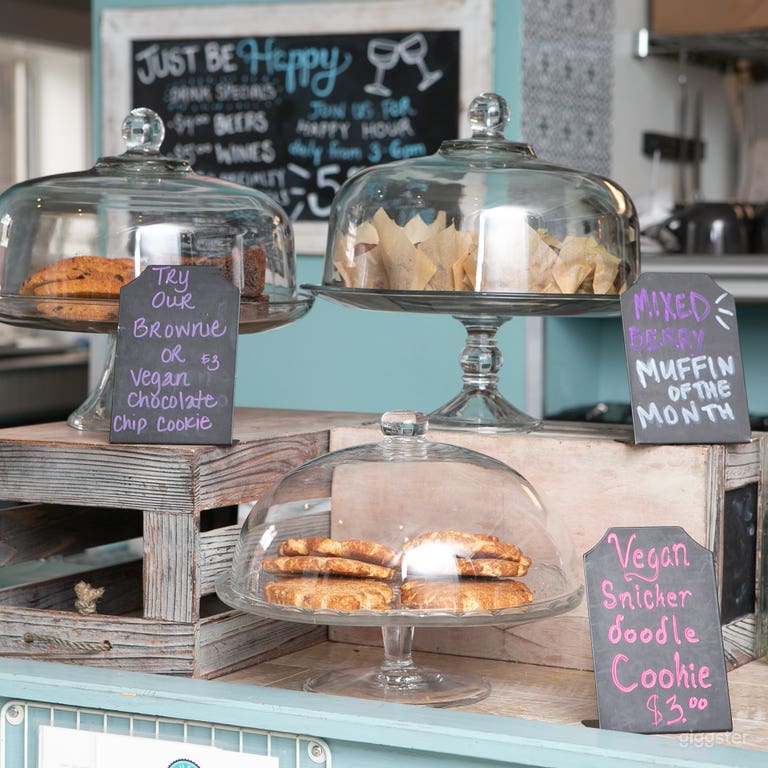 JUST BE Happy
DRINK SPECIALS
BEERS
WINES
JOIN US FOR
HAPPY HOUR
daily from 3-6pm
TRY
OUR
BROWNIE
OR $3
VEGAN
CHOCOLATE
CHIP COOKIE
MIXED
BERRY
MUFFIN
OF THE
MONTH
Vegan
Snicker
doodle
Cookie
$3.00
giggster